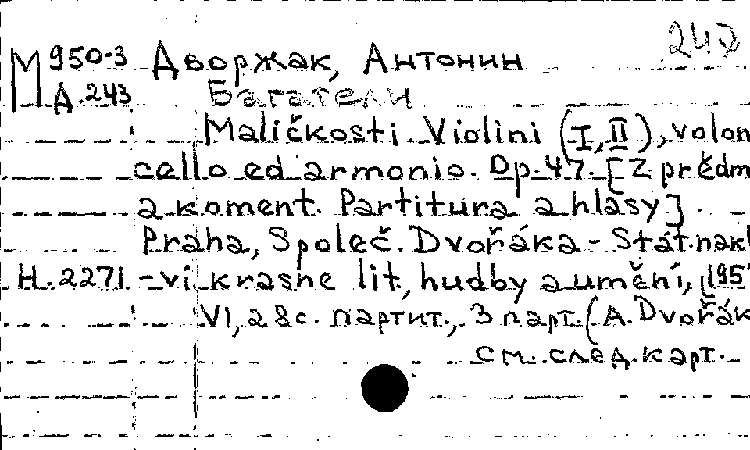 М 950-3 Дворжак, Антонин 242
Д 243 Багатели
Maličkosti. Violini (I, II), volon
cello ed armonio. Op. 47. [Z předm
a koment. Partitura a hlasy].
Praha, Společ. Dvořáka - Stát. nakl
Н. 2271 -vi krasne lit, hudby a umění, [195
VI, 28 с. партит., 3 парт. (A. Dvořák
см. след. карт.